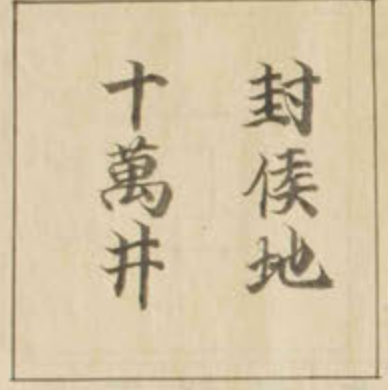 封侯地
十萬井